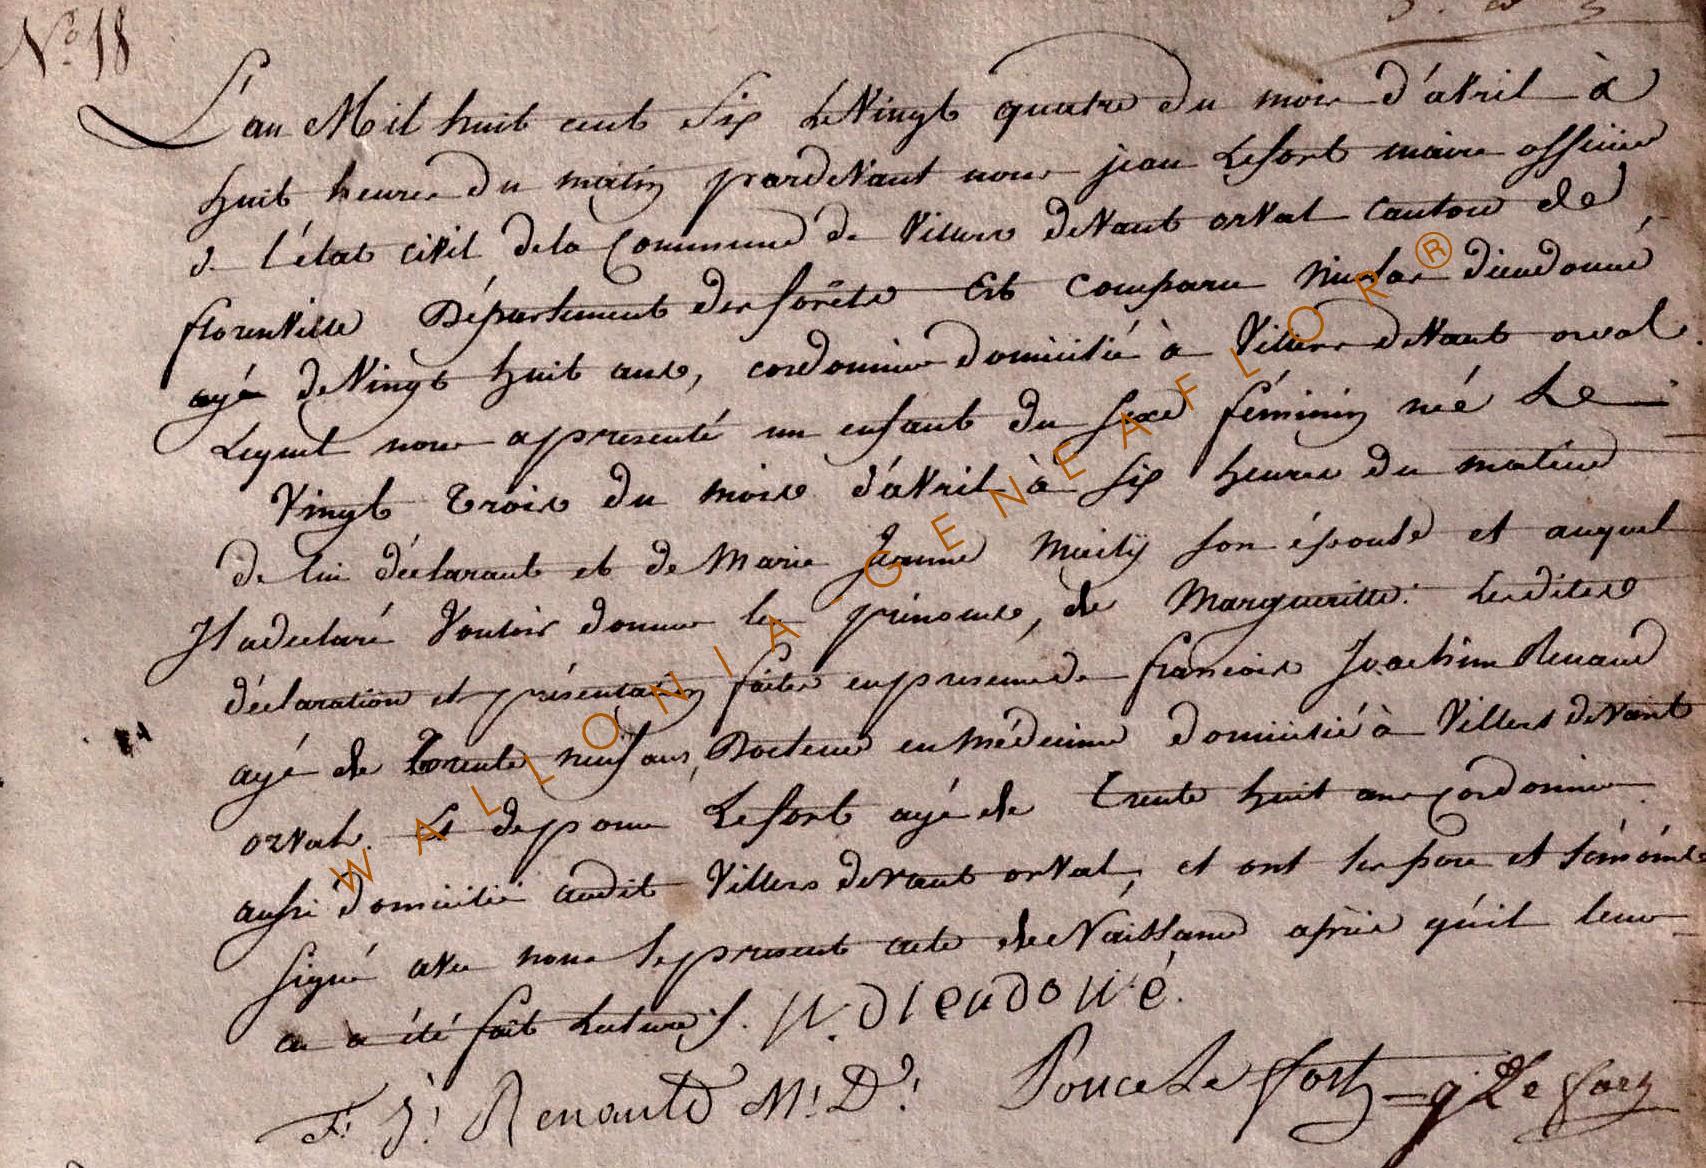 N.º 18
L'an Mil huit cent Six Le Vingt quatre du mois d'aVril à
huit heures du matin pardeVant nous jean Lefort maire officier
d. l'état ciVil dela Commune de Villers deVant orVal Canton de
florenVille Département des forêts Est Comparu Nicolas dieudonné
agé deVingt huit ans, cordonnier domicilié à Villers deVant orval.
Lequel nous apresenté un enfant du Sexe féminin né Le
Vingt Trois du mois d'áVril à Six heures du matin
de lui déclarant et de Marie Jeanne Mailij son épouse et auquel
Il adeclaré Vouloir donner les prénoms, de Margueritte. Lesdites
déclaration et présentation faites enpresence de francois Joachim Renaud
agé de trente neuf ans, Docteur en Médecine domicilié à Villers deVant
orVal. Et de ponce Lefort agé de Trente huit ans Cordonnier
aussi domicilié audit Villers deVant orVal, et ont les pere et témoins
signé avec nous le present acte de Naissance après qu'il leur
en a été fait Lecture ./. N. DIeuDoNé.
F. J. Renauld M. D.
Ponce Le fort = j Le fort
WALLONIA-GENEAFLOR®